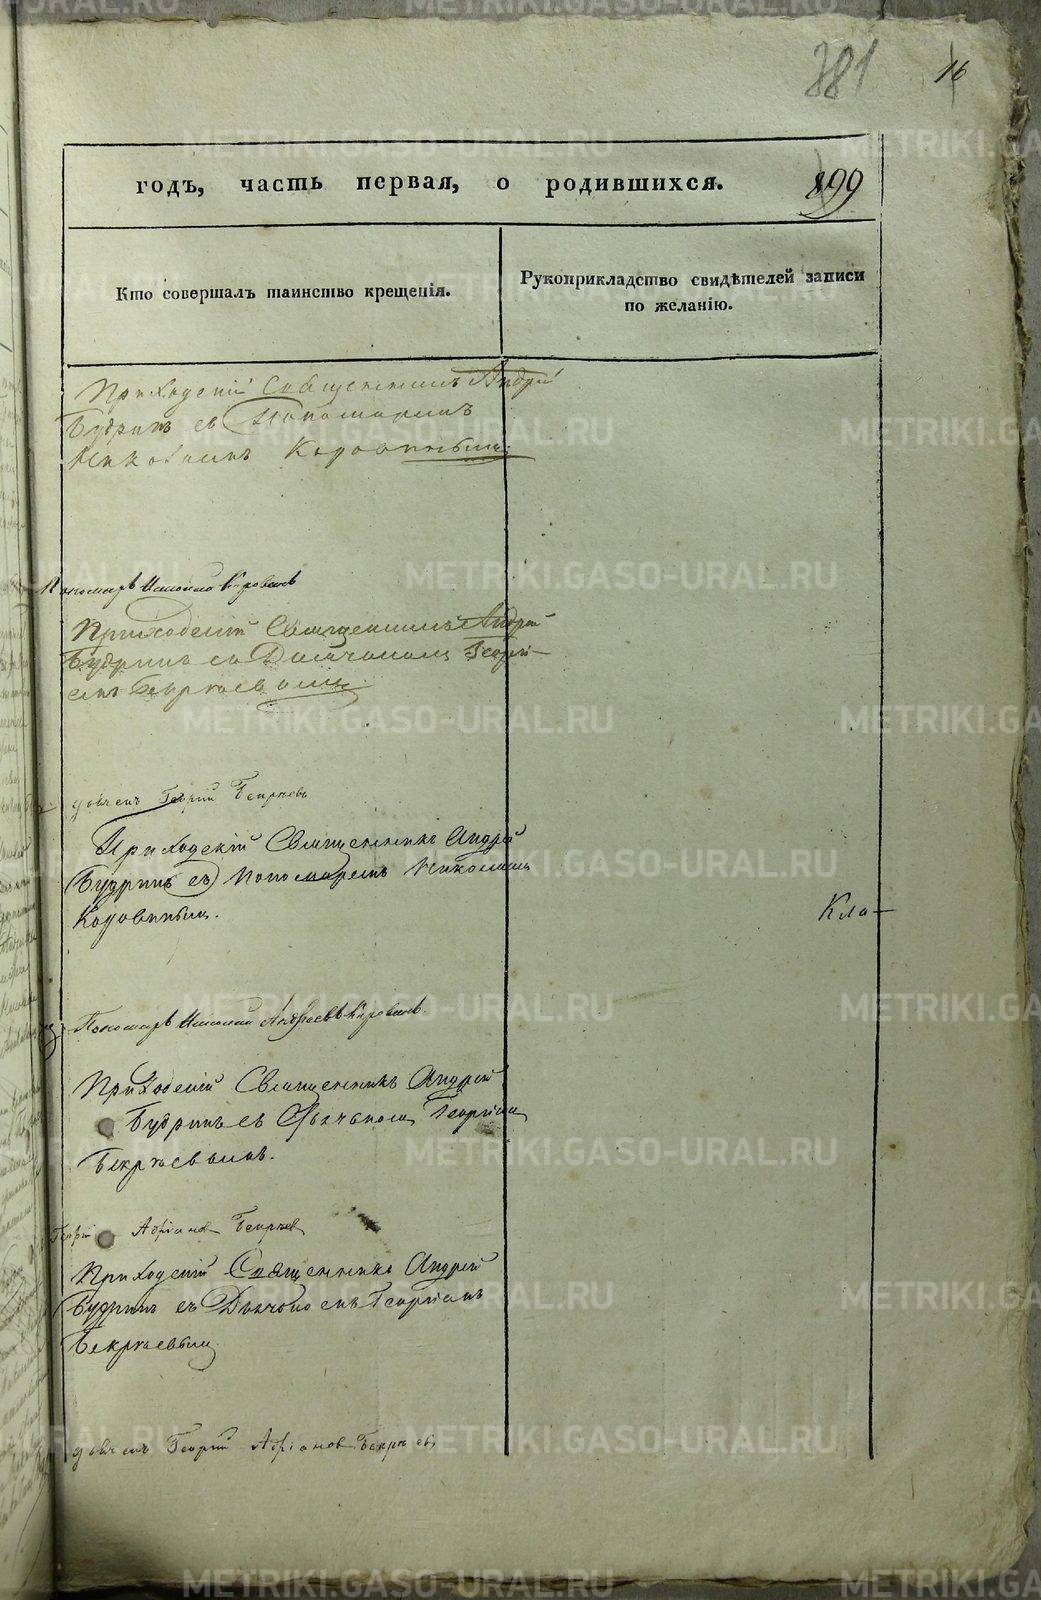 381
16
годъ, часть первая, о родившихся.
899
Кто совершалъ таинство крещенія.
Рукоприкладство свидѣтелей записи
по желанію.
Приходскій Священникъ Андрей
Будринъ съ Пономаремъ
Николаемъ Коровинымъ.
Пономарь Николай Коровинъ
Приходскій Священникъ Андрей
Будринъ съ Дьячкомъ Георгі-
емъ
дьячекъ Георгій
Приходскій Священникъ Андрей
Будринъ съ Пономаремъ Николаемъ
Коровинымъ.
Кла-
Пономарь Николай Андреевъ Коровинъ.
Приходскій Священникъ Андрей
Будринъ съ Дьячкомъ Георгіемъ
Георгій Адріановъ
Приходскій Священникъ Андрей
Будринъ съ Дьячкомъ Георгіемъ
дьячекъ Георгій Адріановъ
METRIKI.GASO-URAL.RU